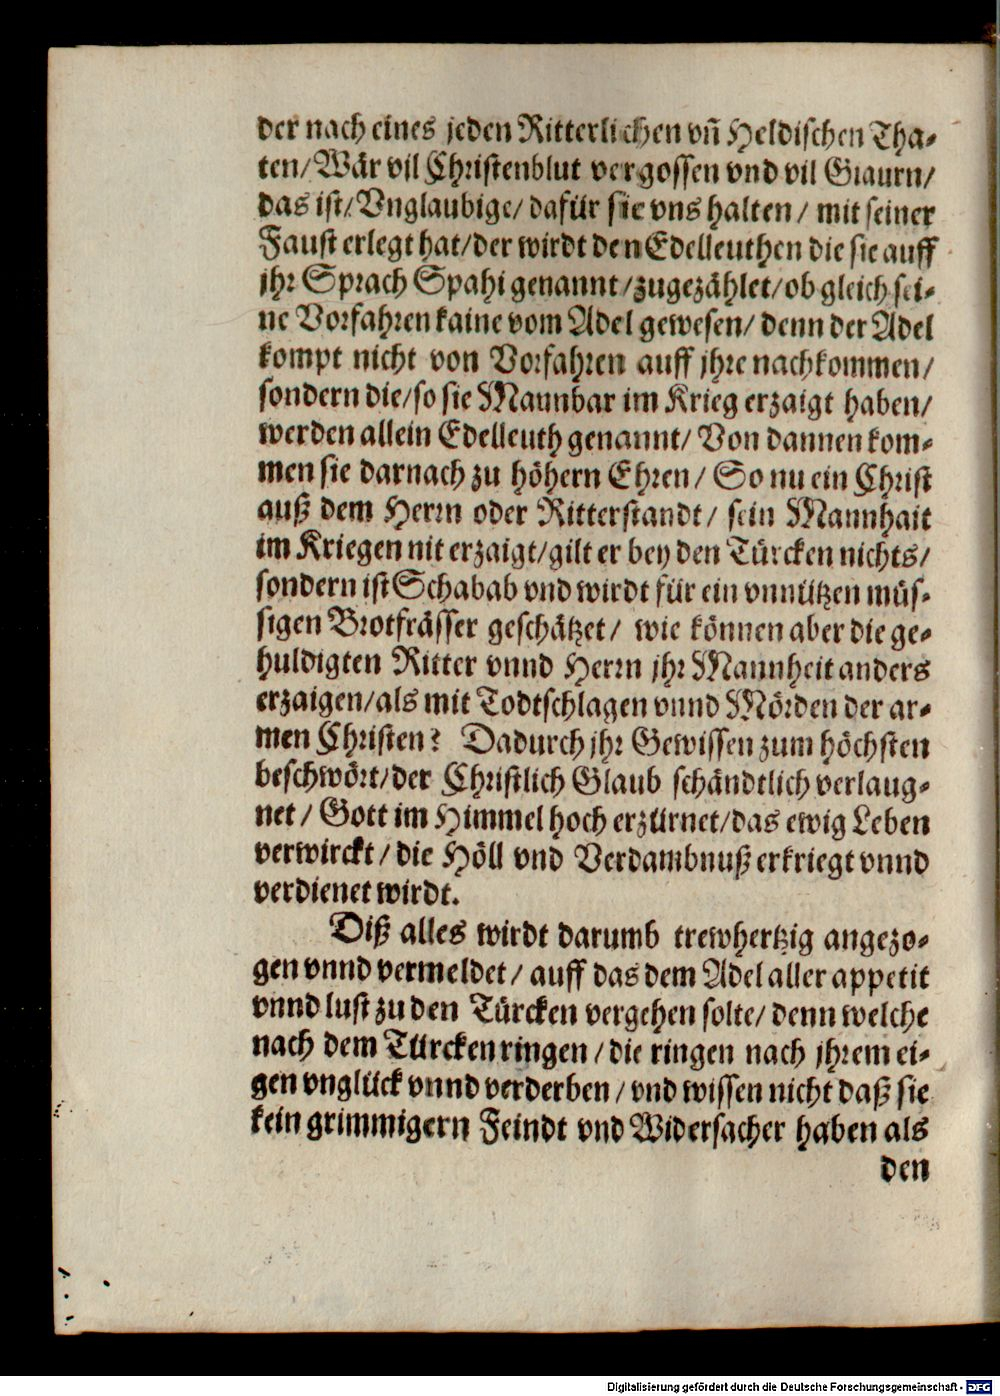 der nach eines jeden Ritterlichen vñ Heldischen Tha-
ten/ Wär vil Christenblut vergossen vnd vil Giaurn/
das ist/ Vnglaubige/ dafür sie vns halten / mit seiner
Faust erlegt hat/ der wirdt den Edelleuthen die sie auff
jhr Sprach Spahi genannt / zugezählet/ ob gleich sei-
ne Vorfahren kaine vom Adel gewesen/ denn der Adel
kompt nicht von Vorfahren auff jhre nachkommen/
sondern die/ so sie Mannbar im Krieg erzaigt haben/
werden allein Edelleuth genannt/ Von dannen kom-
men sie darnach zu höhern Ehren/ So nu ein Christ
auß dem Herrn oder Ritterstandt/ sein Mannhait
im Kriegen nit erzaigt/ gilt er bey den Türcken nichts/
sondern ist Schabab vnd wirdt für ein vnnützen müs-
sigen Brotfrässer geschätzet/ wie können aber die ge-
huldigten Ritter vnnd Herrn jhr Mannheit anders
erzaigen/ als mit Todtschlagen vnnd Mörden der ar-
men Christen? Dadurch jhr Gewissen zum höchsten
beschwört/ der Christlich Glaub schändtlich verlaug-
net / Gott im Himmel hoch erzürnet/ das ewig Leben
verwirckt / die Höll vnd Verdambnuß erkriegt vnnd
verdienet wirdt.
Diß alles wirdt darumb trewhertzig angezo-
gen vnnd vermeldet / auff das dem Adel aller appetit
vnnd lust zu den Türcken vergehen solte/ denn welche
nach dem Türcken ringen / die ringen nach jhrem ei-
gen vnglück vnnd verderben / vnd wissen nicht daß sie
kein grimmigern Feindt vnd Widersacher haben als
den
Digitalisierung gefördert durch die Deutsche Forschungsgemeinschaft - DFG